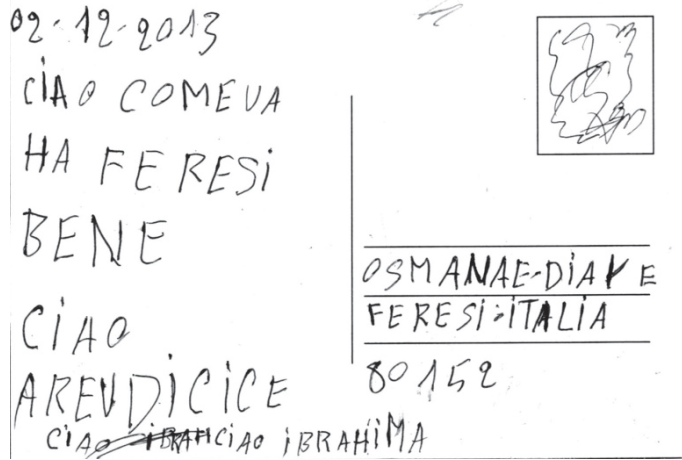 02-12-2013
CIAO COMEVA
HA FERESI
BENE
CIAO
AREVDICICE
CIAO CIAO IBRAHIMA
OSMANAE-DIAYE
FERESI:ITALIA
80152